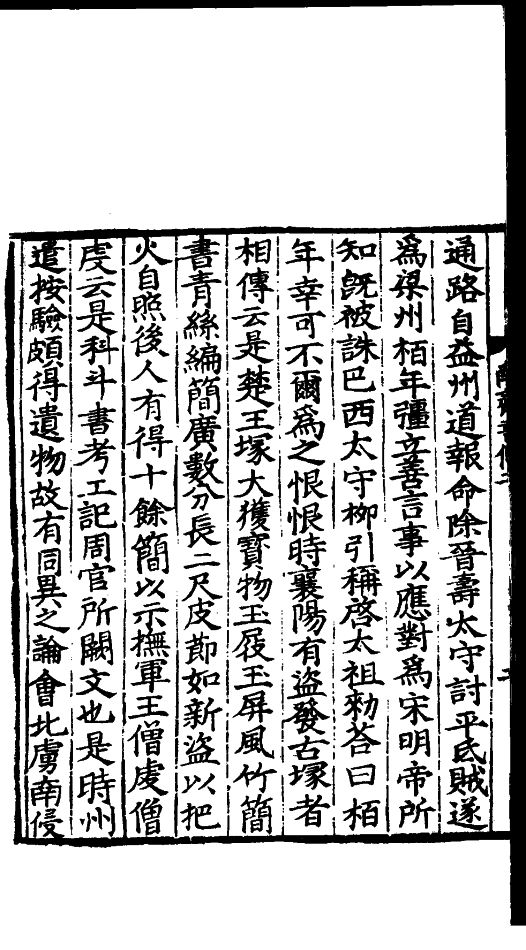 通路自益州道報命除晉壽太守討平氐賊遂
爲梁州栢年彊立善言事以應對爲宋明帝所
知旣被誅巴西太守柳引稱啓太祖勑荅曰栢
年幸可不爾爲之恨恨時襄陽有盜發古塚者
相傳云是楚王塚大獲寶物玉屐玉屏風竹簡
書青絲編簡廣數分長二尺皮節如新盜以把
火自照後人有得十餘簡以示撫軍王僧虔僧
虔云是科斗書考工記周官所闕文也是時州
遣按驗頗得遺物故有同異之論會北虜南侵